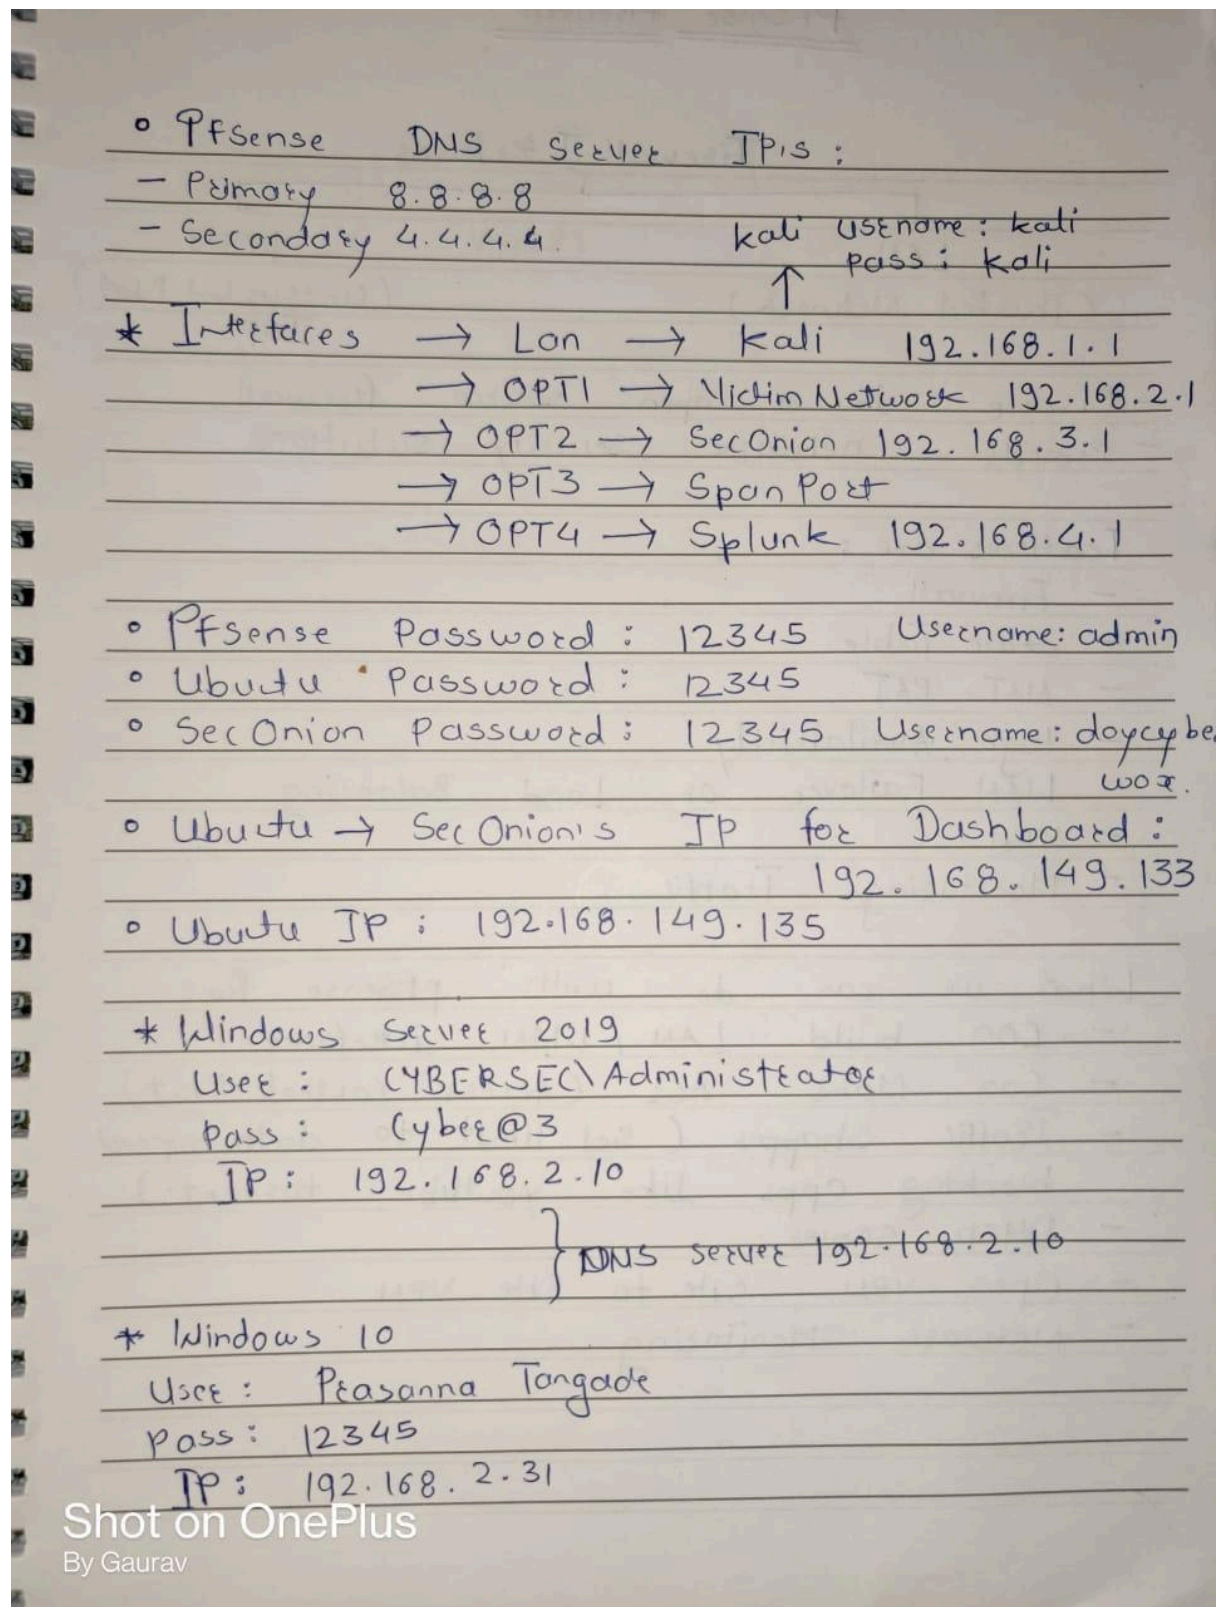 ° Pfsense DNS Server IP's :
- Primary 8.8.8.8
- Secondary 4.4.4.4.
kali username : kali
pass : kali
↑
* Interfaces → Lan → Kali 192.168.1.1
→ OPT1 → Victim Network 192.168.2.1
→ OPT2 → SecOnion 192.168.3.1
→ OPT3 → Span Port
→ OPT4 → Splunk 192.168.4.1
° Pfsense Password : 12345 Username: admin
° Ubuutu Password : 12345
° SecOnion Password : 12345 Username: doycybe
wox.
° Ubuutu → SecOnion's IP for Dashboard :
192.168.149.133
° Ubuutu IP : 192.168.149.135
* Windows Server 2019
User : CYBERSEC\Administrator
pass : Cyber@3
IP : 192.168.2.10
} DNS server 192.168.2.10
* Windows 10
User : Prasanna Tangade
pass : 12345
IP : 192.168.2.31
Shot on OnePlus
By Gaurav